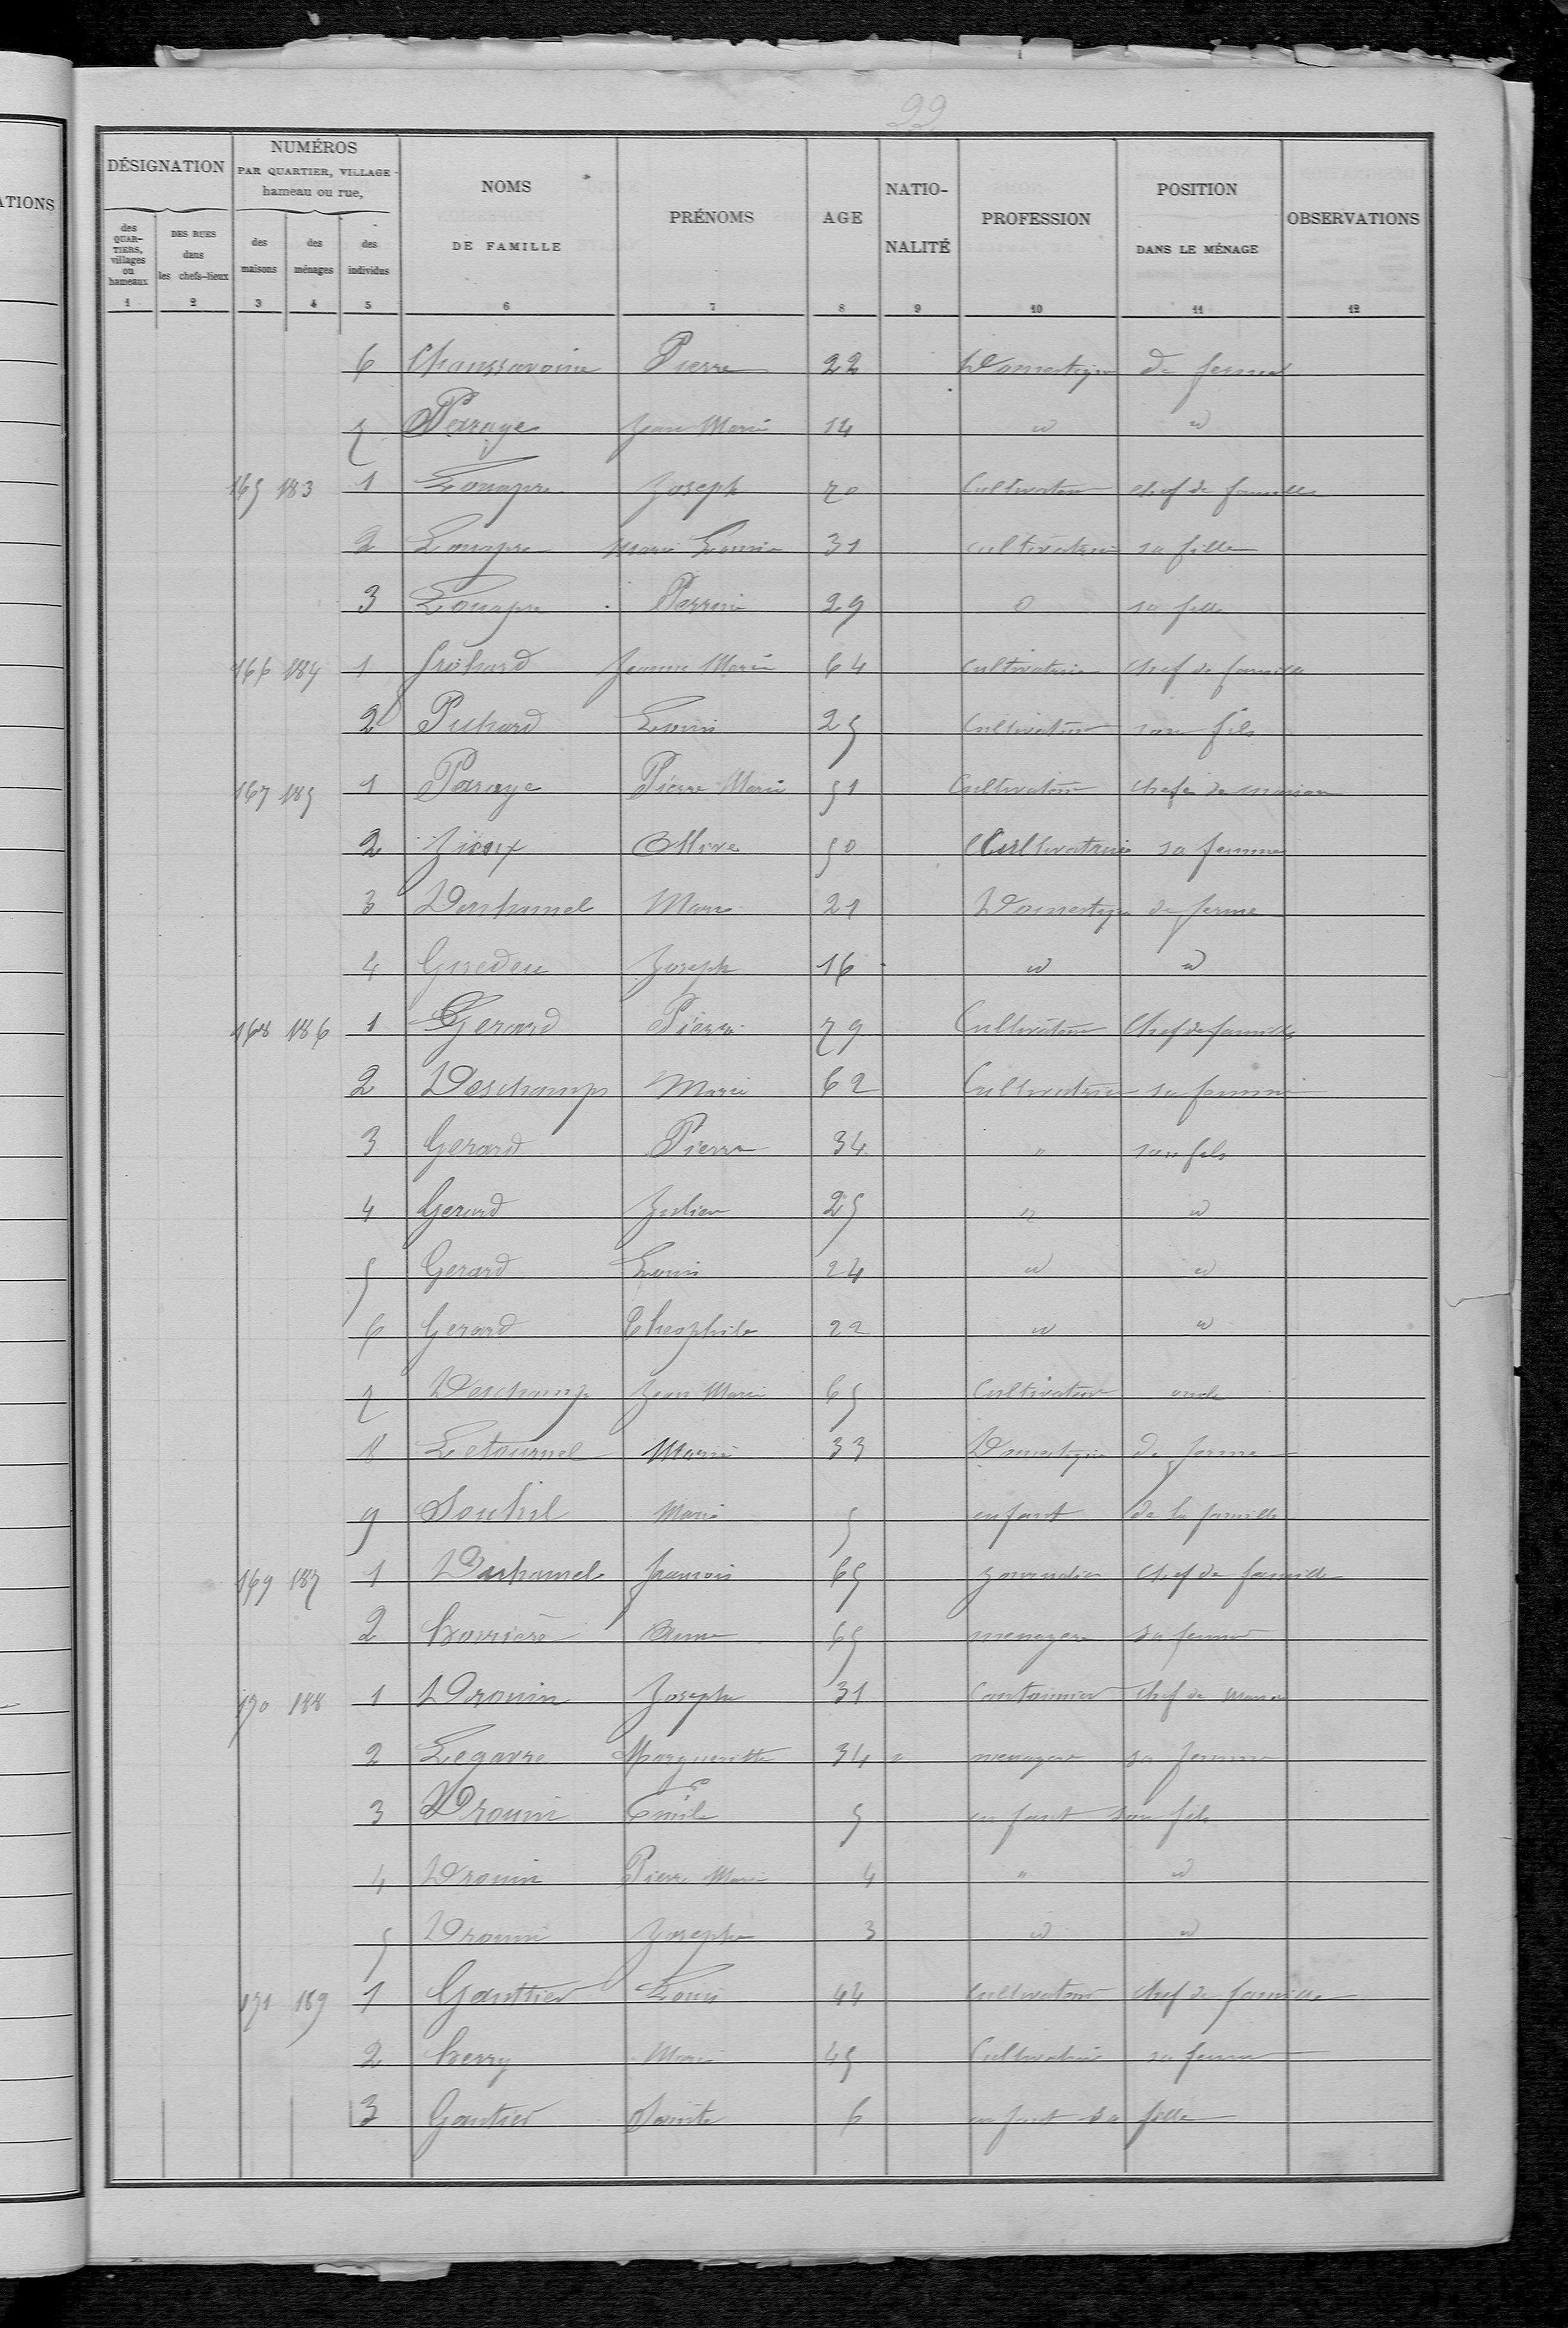 22
ATIONS
DÉSIGNATION NUMÉROS PAR QUARTIER, VILLAGE hameau ou rue, NOMS DE FAMILLE PRÉNOMS AGE NATIO-NALITÉ PROFESSION POSITION DANS LE MÉNAGE OBSERVATIONS
des QUARTIERS, villages ou hameaux DES RUES dans les chefs-lieux des maisons des ménages des individus
1 2 3 4 5 6 7 8 9 10 11 12
6 Chaussavoine Pierre 22 Domestique de ferme
7 Paraye Jean Marie 14 " "
165 183 1 Louapre Joseph 70 Cultivateur chef de famille
2 Louapre Marie Louise 31 cultivatrice sa fille
3 Louapre Perrine 29 sa fille
166 184 1 Jeanne Marie 64 Cultivatrice Chef de famille
2 Louis 25 Cultivateur son fils
167 185 1 Paraye Pierre Marie 51 Cultivateur chef de maison
2 Olive 50 Cultivatrice sa femme
3 Duhamel Marie 21 Domestique de ferme
4 Joseph 16 " "
168 186 1 Gerard Pierre 79 Cultivateur Chef de famille
2 Deschamps Marie 62 Cultivatrice sa femme
3 Gerard Pierre 34 " son fils
4 Gerard Julien 25 " "
5 Gerard Louis 24 " "
6 Gerard Theophile 22 " "
7 Deschamps Jean Marie 65 Cultivateur oncle
8 Letournel Marie 33 Domestique de ferme
9 Marie 5 enfant de la famille
169 187 1 Duhamel francois 65 journalier chef de famille
2 Anne 65 menagere sa femme
170 188 1 Drouin Joseph 31 Cantonnier chef de maison
2 Legavre Margueritte 34 " menagere sa femme
3 Drouin Emile 5 enfant son fils
4 Drouin Pierre Marie 4 " "
5 Drouin Joseph 3 " "
171 189 1 Gauttier Louis 44 Cultivateur chef de famille
2 Marie 45 Cultivatrice sa femme
3 Gautier Sainte 6 enfant sa fille